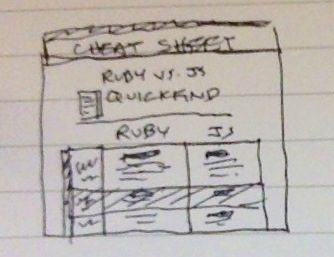 CHEAT SHEET
RUBY VS. JS
QUICKFIND
RUBY JS